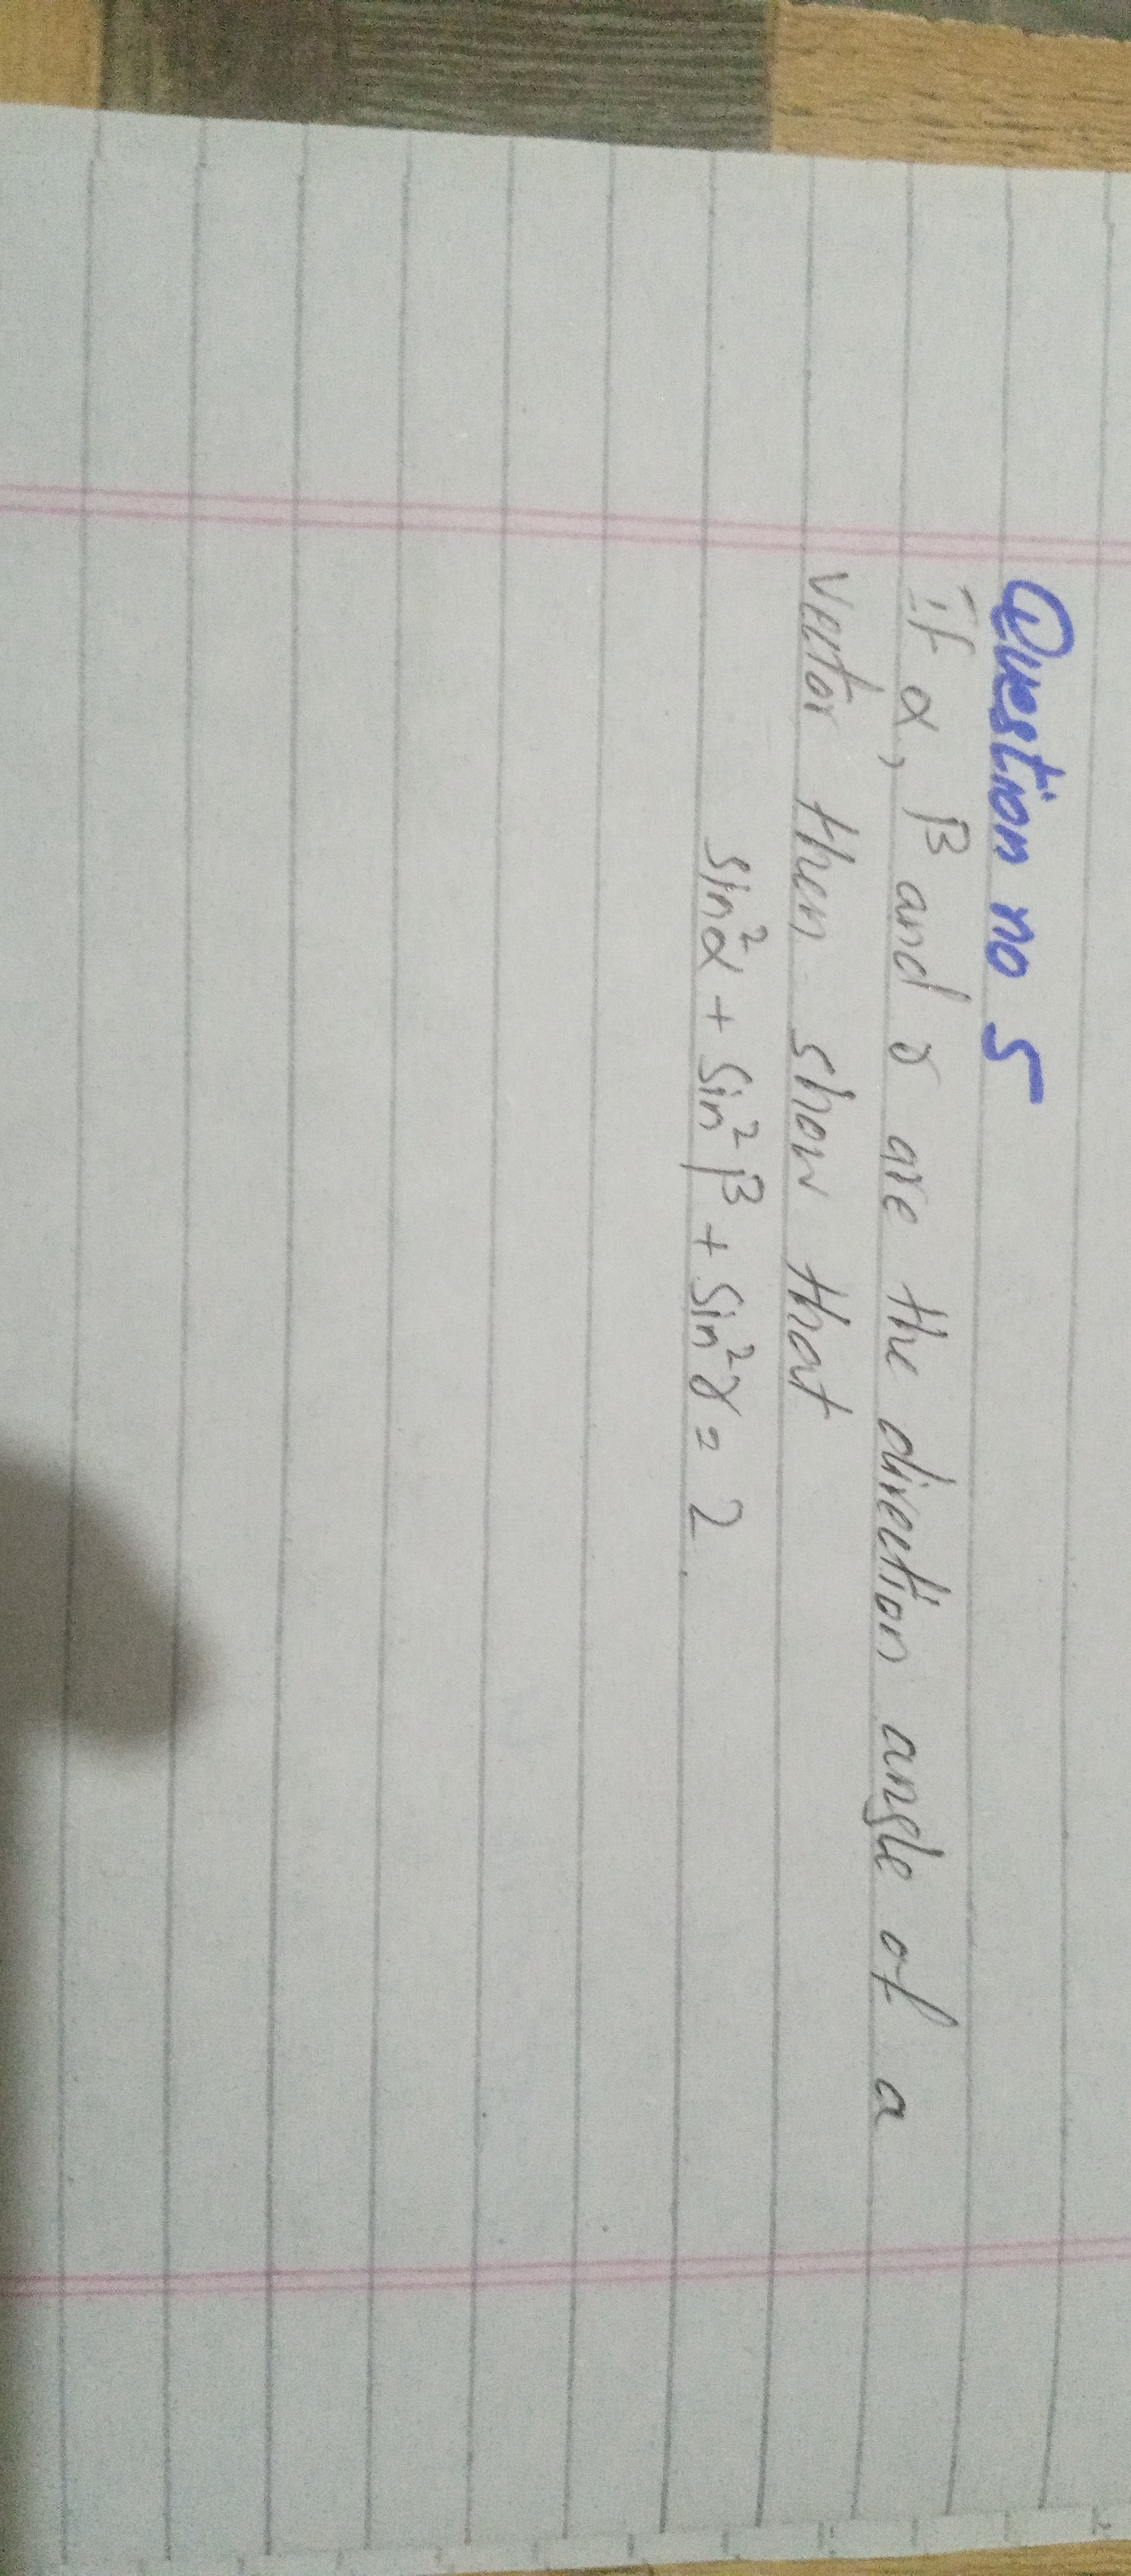 Question no 5
if α, β and γ are the direction angle of a
vector then show that
sin²α + sin²β + sin²γ = 2.